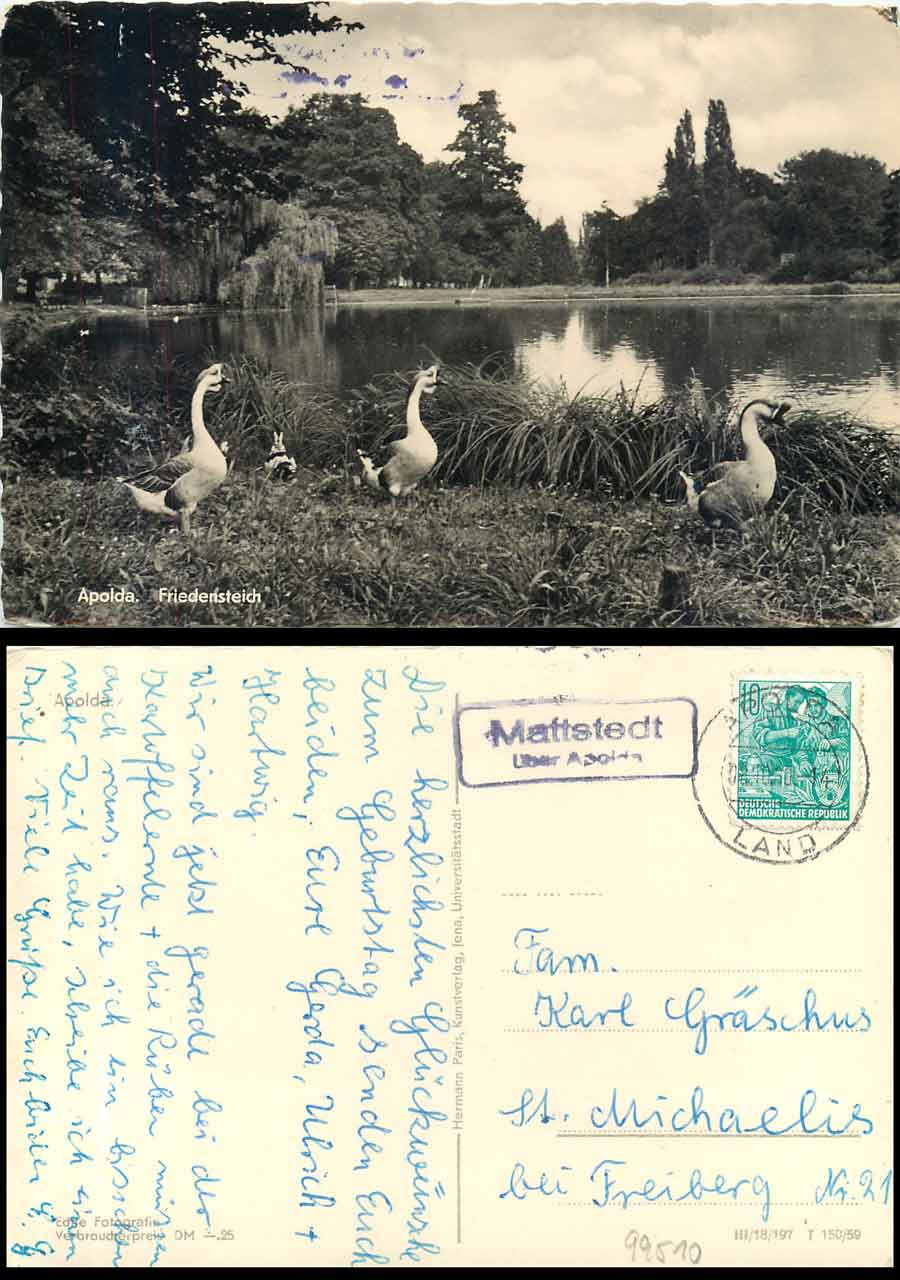 Apolda. Friedensteich
Apolda.
Die herzlichsten Glückwünsche
zum Geburtstag senden Euch
beiden, Eure Gerda, Ulrich +
Hartwig.
Wir sind jetzt gerade bei der
Kartoffelernte + die Rüben müssen
auch raus. Wie ich ein bisschen
mehr Zeit habe, schreibe ich einen
Brief. Viele Grüße Euch beiden
Echte Fotografie
Verbraucherpreis DM —.25
Hermann Paris, Kunstverlag, Jena, Universitätsstadt
Mattstedt
über Apolda
10
DEUTSCHE
DEMOKRATISCHE REPUBLIK
LAND
Fam.
Karl Gräschus
St. Michaelis
bei Freiberg Nr. 21
III/18/197 T 150/59
99510